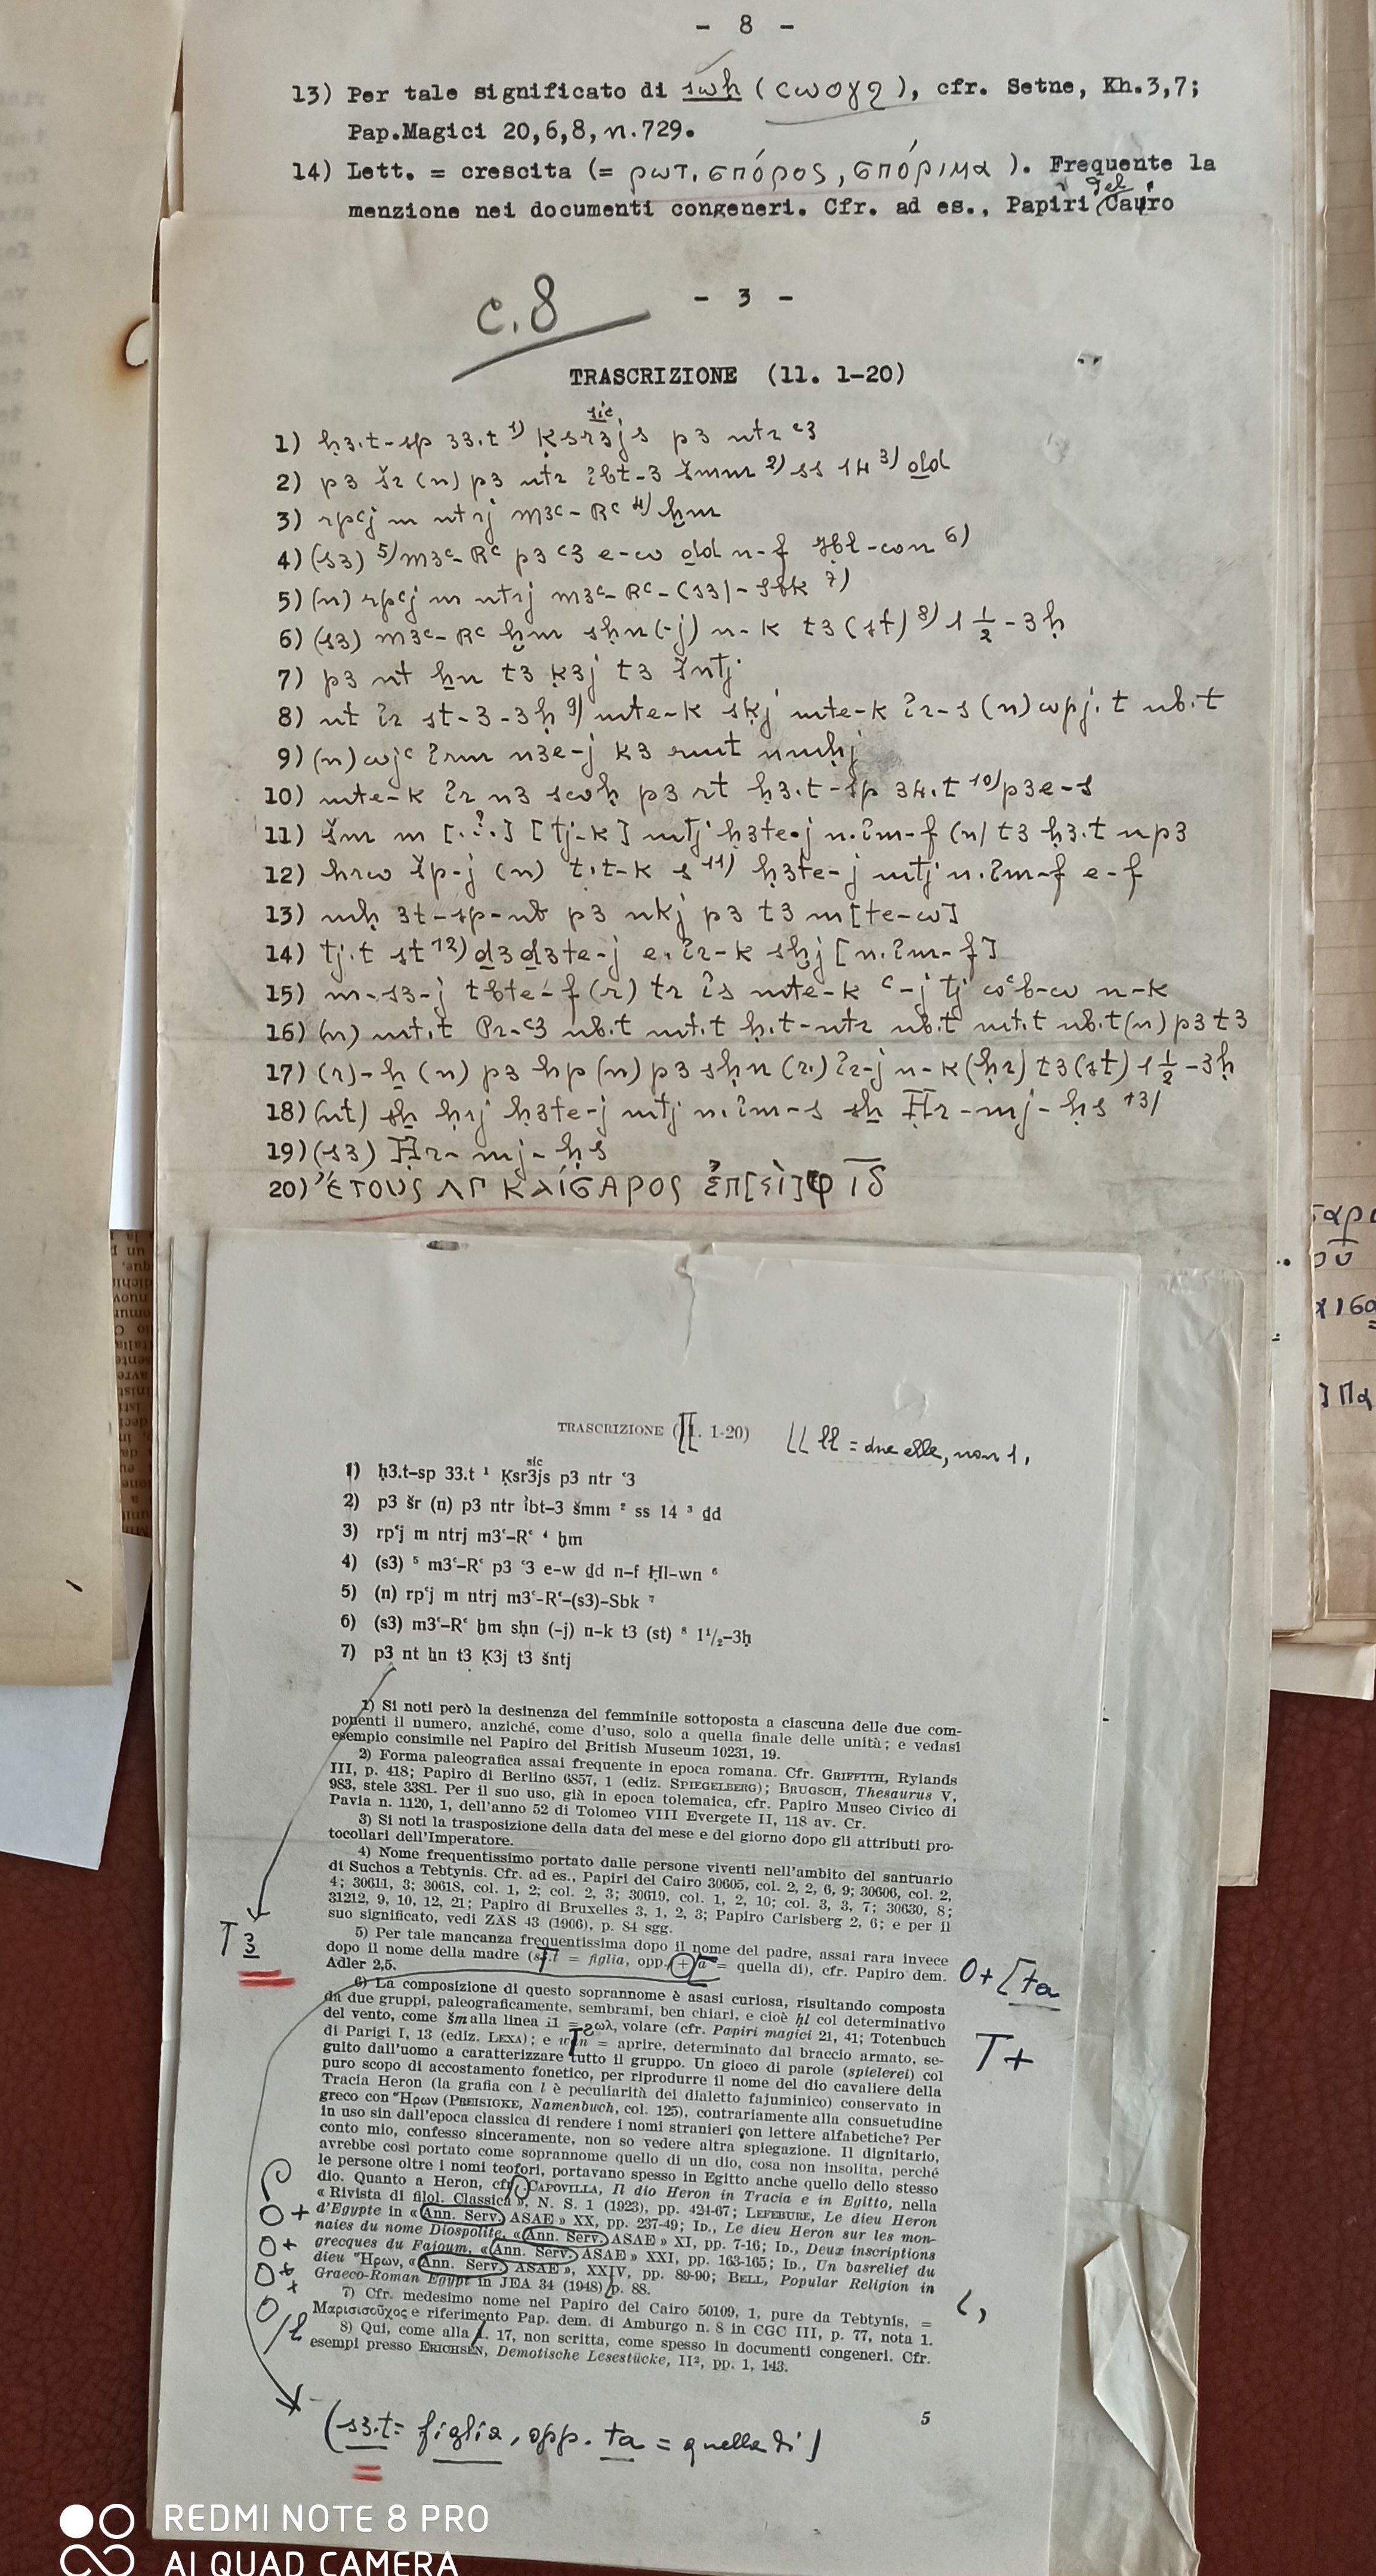 - 8 -
13) Per tale significato di swḥ (ϲωογϩ), cfr. Setne, Kh.3,7;
Pap.Magici 20,6,8, n.729.
14) Lett. = crescita (= ρωτ, σπόρος, σπόριμα ). Frequente la
menzione nei documenti congeneri. Cfr. ad es., Papiri del Cairo
c.8
- 3 -
TRASCRIZIONE (11. 1-20)
sic
1) ḥ3.t-sp 33.t 1) Ḳsr3js p3 ntr ʿ3
2) p3 šr (n) p3 ntr ỉbt-3 šmm 2) ss 14 3) ḏd
3) rpʿj m ntrj m3ʿ-Rʿ 4) ẖm
4) (s3) 5) m3ʿ-Rʿ p3 ʿ3 e-w ḏd n-f Ḥl-wn 6)
5) (n) rpʿj m ntrj m3ʿ-Rʿ-(s3)-Sbk 7)
6) (s3) m3ʿ-Rʿ ẖm sḥn(-j) n-k t3 (st) 8) 1 1/2-3ḥ
7) p3 nt ẖn t3 ḳ3j t3 šntj
8) nt ỉr st-3-3ḥ 9) mte-k skj mte-k ỉr-s (n) wpj.t nb.t
9) (n) wjʿ ỉrm n3e-j k3 rmt nmḥj
10) mte-k ỉr n3 swḥ p3 rt ḥ3.t-sp 34.t 10) p3e-s
11) šm m [.?.] [tj-k] mtj ḥ3te-j n.ỉm-f (n) t3 ḥ3.t n p3
12) hrw šp-j (n) t.t-k s 11) ḥ3te-j mtj n.ỉm-f e-f
13) mḥ 3t-sp-nb p3 nkj p3 t3 m[te-w]
14) tj.t st 12) ḏ3ḏ3te-j e.ỉr-k sẖj [n.ỉm-f]
15) m-s3-j tbte-f (r) tr ỉs mte-k ʿ-j tj wʿb-w n-k
16) (n) mt.t Pr-ʿ3 nb.t mt.t ḥ.t-ntr nb.t mt.t nb.t (n) p3 t3
17) (r)-ẖ (n) p3 hp (n) p3 sḥn (r.) ỉr-j n-k (ḥr) t3 (st) 1 1/2-3ḥ
18) (nt) sẖ ḥrj ḥ3te-j mtj n.ỉm-s sẖ Ḥr-mj-ḥs 13)
19) (s3) Ḥr-mj-ḥs
20) ἜΤΟΥΣ ΛΓ ΚΑΊΣΑΡΟΣ ἐπ[εὶ]φ ΙΔ
TRASCRIZIONE (ll. 1-20) LL ll = due elle, non 1,
sic
1) ḥ3.t-sp 33.t 1 Ḳsr3js p3 ntr ʿ3
2) p3 šr (n) p3 ntr ỉbt-3 šmm 2 ss 14 3 ḏd
3) rpʿj m ntrj m3ʿ-Rʿ 4 ẖm
4) (s3) 5 m3ʿ-Rʿ p3 ʿ3 e-w ḏd n-f Ḥl-wn 6
5) (n) rpʿj m ntrj m3ʿ-Rʿ-(s3)-Sbk 7
6) (s3) m3ʿ-Rʿ ẖm sḥn (-j) n-k t3 (st) 8 1 1/2-3ḥ
7) p3 nt ẖn t3 Ḳ3j t3 šntj
1) Si noti però la desinenza del femminile sottoposta a ciascuna delle due com-
ponenti il numero, anziché, come d'uso, solo a quella finale delle unità; e vedasi
esempio consimile nel Papiro del British Museum 10231, 19.
2) Forma paleografica assai frequente in epoca romana. Cfr. GRIFFITH, Rylands
III, p. 418; Papiro di Berlino 6857, 1 (ediz. SPIEGELBERG); BRUGSCH, Thesaurus V,
983, stele 3381. Per il suo uso, già in epoca tolemaica, cfr. Papiro Museo Civico di
Pavia n. 1120, 1, dell'anno 52 di Tolomeo VIII Evergete II, 118 av. Cr.
3) Si noti la trasposizione della data del mese e del giorno dopo gli attributi pro-
tocollari dell'Imperatore.
4) Nome frequentissimo portato dalle persone viventi nell'ambito del santuario
di Suchos a Tebtynis. Cfr. ad es., Papiri del Cairo 30605, col. 2, 2, 6, 9; 30606, col. 2,
4; 30611, 3; 30618, col. 1, 2; col. 2, 3; 30619, col. 1, 2, 10; col. 3, 3, 7; 30630, 8;
31212, 9, 10, 12, 21; Papiro di Bruxelles 3, 1, 2, 3; Papiro Carlsberg 2, 6; e per il
suo significato, vedi ZÄS 43 (1906), p. 84 sgg.
T3
5) Per tale mancanza frequentissima dopo il nome del padre, assai rara invece
dopo il nome della madre (s3.t = figlia, opp. +a = quella di), cfr. Papiro dem.
Adler 2,5.
O+ [ta
6) La composizione di questo soprannome è asasi curiosa, risultando composta
da due gruppi, paleograficamente, sembrami, ben chiari, e cioè ḥl col determinativo
del vento, come šm alla linea 11 = ϩωλ, volare (cfr. Papiri magici 21, 41; Totenbuch
di Parigi I, 13 (ediz. LEXA); e wn = aprire, determinato dal braccio armato, se-
T+
guito dall'uomo a caratterizzare tutto il gruppo. Un gioco di parole (spielerei) col
puro scopo di accostamento fonetico, per riprodurre il nome del dio cavaliere della
Tracia Heron (la grafia con l è peculiarità dei dialetto fajuminico) conservato in
greco con Ἥρων (PREISIGKE, Namenbuch, col. 125), contrariamente alla consuetudine
in uso sin dall'epoca classica di rendere i nomi stranieri con lettere alfabetiche? Per
conto mio, confesso sinceramente, non so vedere altra spiegazione. Il dignitario,
avrebbe così portato come soprannome quello di un dio, cosa non insolita, perché
le persone oltre i nomi teofori, portavano spesso in Egitto anche quello dello stesso
dio. Quanto a Heron, cfr. CAPOVILLA, Il dio Heron in Tracia e in Egitto, nella
« Rivista di filol. Classica », N. S. 1 (1923), pp. 424-67; LEFEBURE, Le dieu Heron
d'Egypte in « Ann. Serv. ASAE » XX, pp. 237-49; ID., Le dieu Heron sur les mon-
naies du nome Diospolite, « Ann. Serv. ASAE » XI, pp. 7-16; ID., Deux inscriptions
grecques du Fajoum, « Ann. Serv. ASAE » XXI, pp. 163-165; ID., Un basrelief du
dieu Ἥρων, « Ann. Serv. ASAE », XXIV, pp. 89-90; BELL, Popular Religion in
Graeco-Roman Egypt in JEA 34 (1948) p. 88.
7) Cfr. medesimo nome nel Papiro del Cairo 50109, 1, pure da Tebtynis, =
Μαρισισοῦχος e riferimento Pap. dem. di Amburgo n. 8 in CGC III, p. 77, nota 1.
8) Qui, come alla l. 17, non scritta, come spesso in documenti congeneri. Cfr.
esempi presso ERICHSEN, Demotische Lesestücke, II², pp. 1, 143.
5
(s3.t = figlia, opp. ta = quella di)
REDMI NOTE 8 PRO
AI QUAD CAMERA